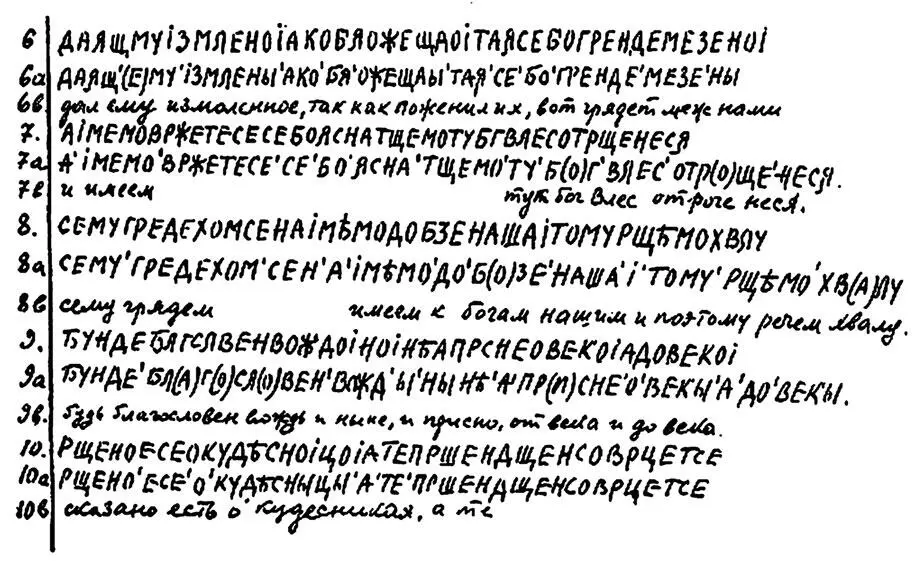 6 ДАЯЩМУІЗМЛЕНОІАКОБЯОЖЕЩАОІТАЯСЕБОГРЕНДЕМЕЗЕНОІ
6а ДАЯЩ'(Е)МУ'ІЗМЛЕНЫ'АКО'БЯ'ОЖЕЩАЫ'ТАЯ'СЕ'БО'ГРЕНДЕ'МЕЗЕ'НЫ
6в дал ему измоленное, так как поженил их, вот грядет меж нами
7. АІМЕМОВРЖЕТЕСЕСЕБОЯСНАТЩЕМОТУБГВЛЕСОТРЩЕНЕСЯ
7а А'ІМЕМО'ВРЖЕТЕСЕ'СЕ'БО'ЯСНА'ТЩЕМО'ТУ'Б(О)Г'ВЛЕС'ОТР(О)ЩЕ'НЕСЯ.
7в и имеем тут бог Влес отроче неся.
8. СЕМУГРЕДЕХОМСЕНАІМѢМОДОБЗЕНАШАІТОМУРЩѢМОХВЛУ
8а СЕМУ'ГРЕДЕХОМ'СЕН'А'ІМѢМО'ДО'Б(О)ЗЕ'НАША'І'ТОМУ'РЩѢМО'ХВ(А)ЛУ
8в сему грядем имеем к богам нашим и поэтому речем хвалу.
9. БУНДЕБЛГСЛВЕНВОЖДОІНОІНѢАПРСНЕОВЕКОІАДОВЕКОІ
9а БУНДЕ'БЛ(А)Г(О)СЛ(О)ВЕН'ВОЖД'Ы'НЫНѢ'А'ПР(И)СНЕ'О'ВЕКЫ'А'ДО'ВЕКЫ.
9в. будь благословен вождь и ныне, и присно, от века и до века.
10. РЩЕНОЕСЕОКУДѢСНОІЦОІАТЕПРШЕНДЩЕНСОВРЦЕТСЕ
10а РЩЕНО'ЕСЕ'О'КУДѢСНЫЦЫ'А'ТЕ'ПРШЕНДЩЕНСОВРЦЕТСЕ
10в сказано есть о кудесниках, а те